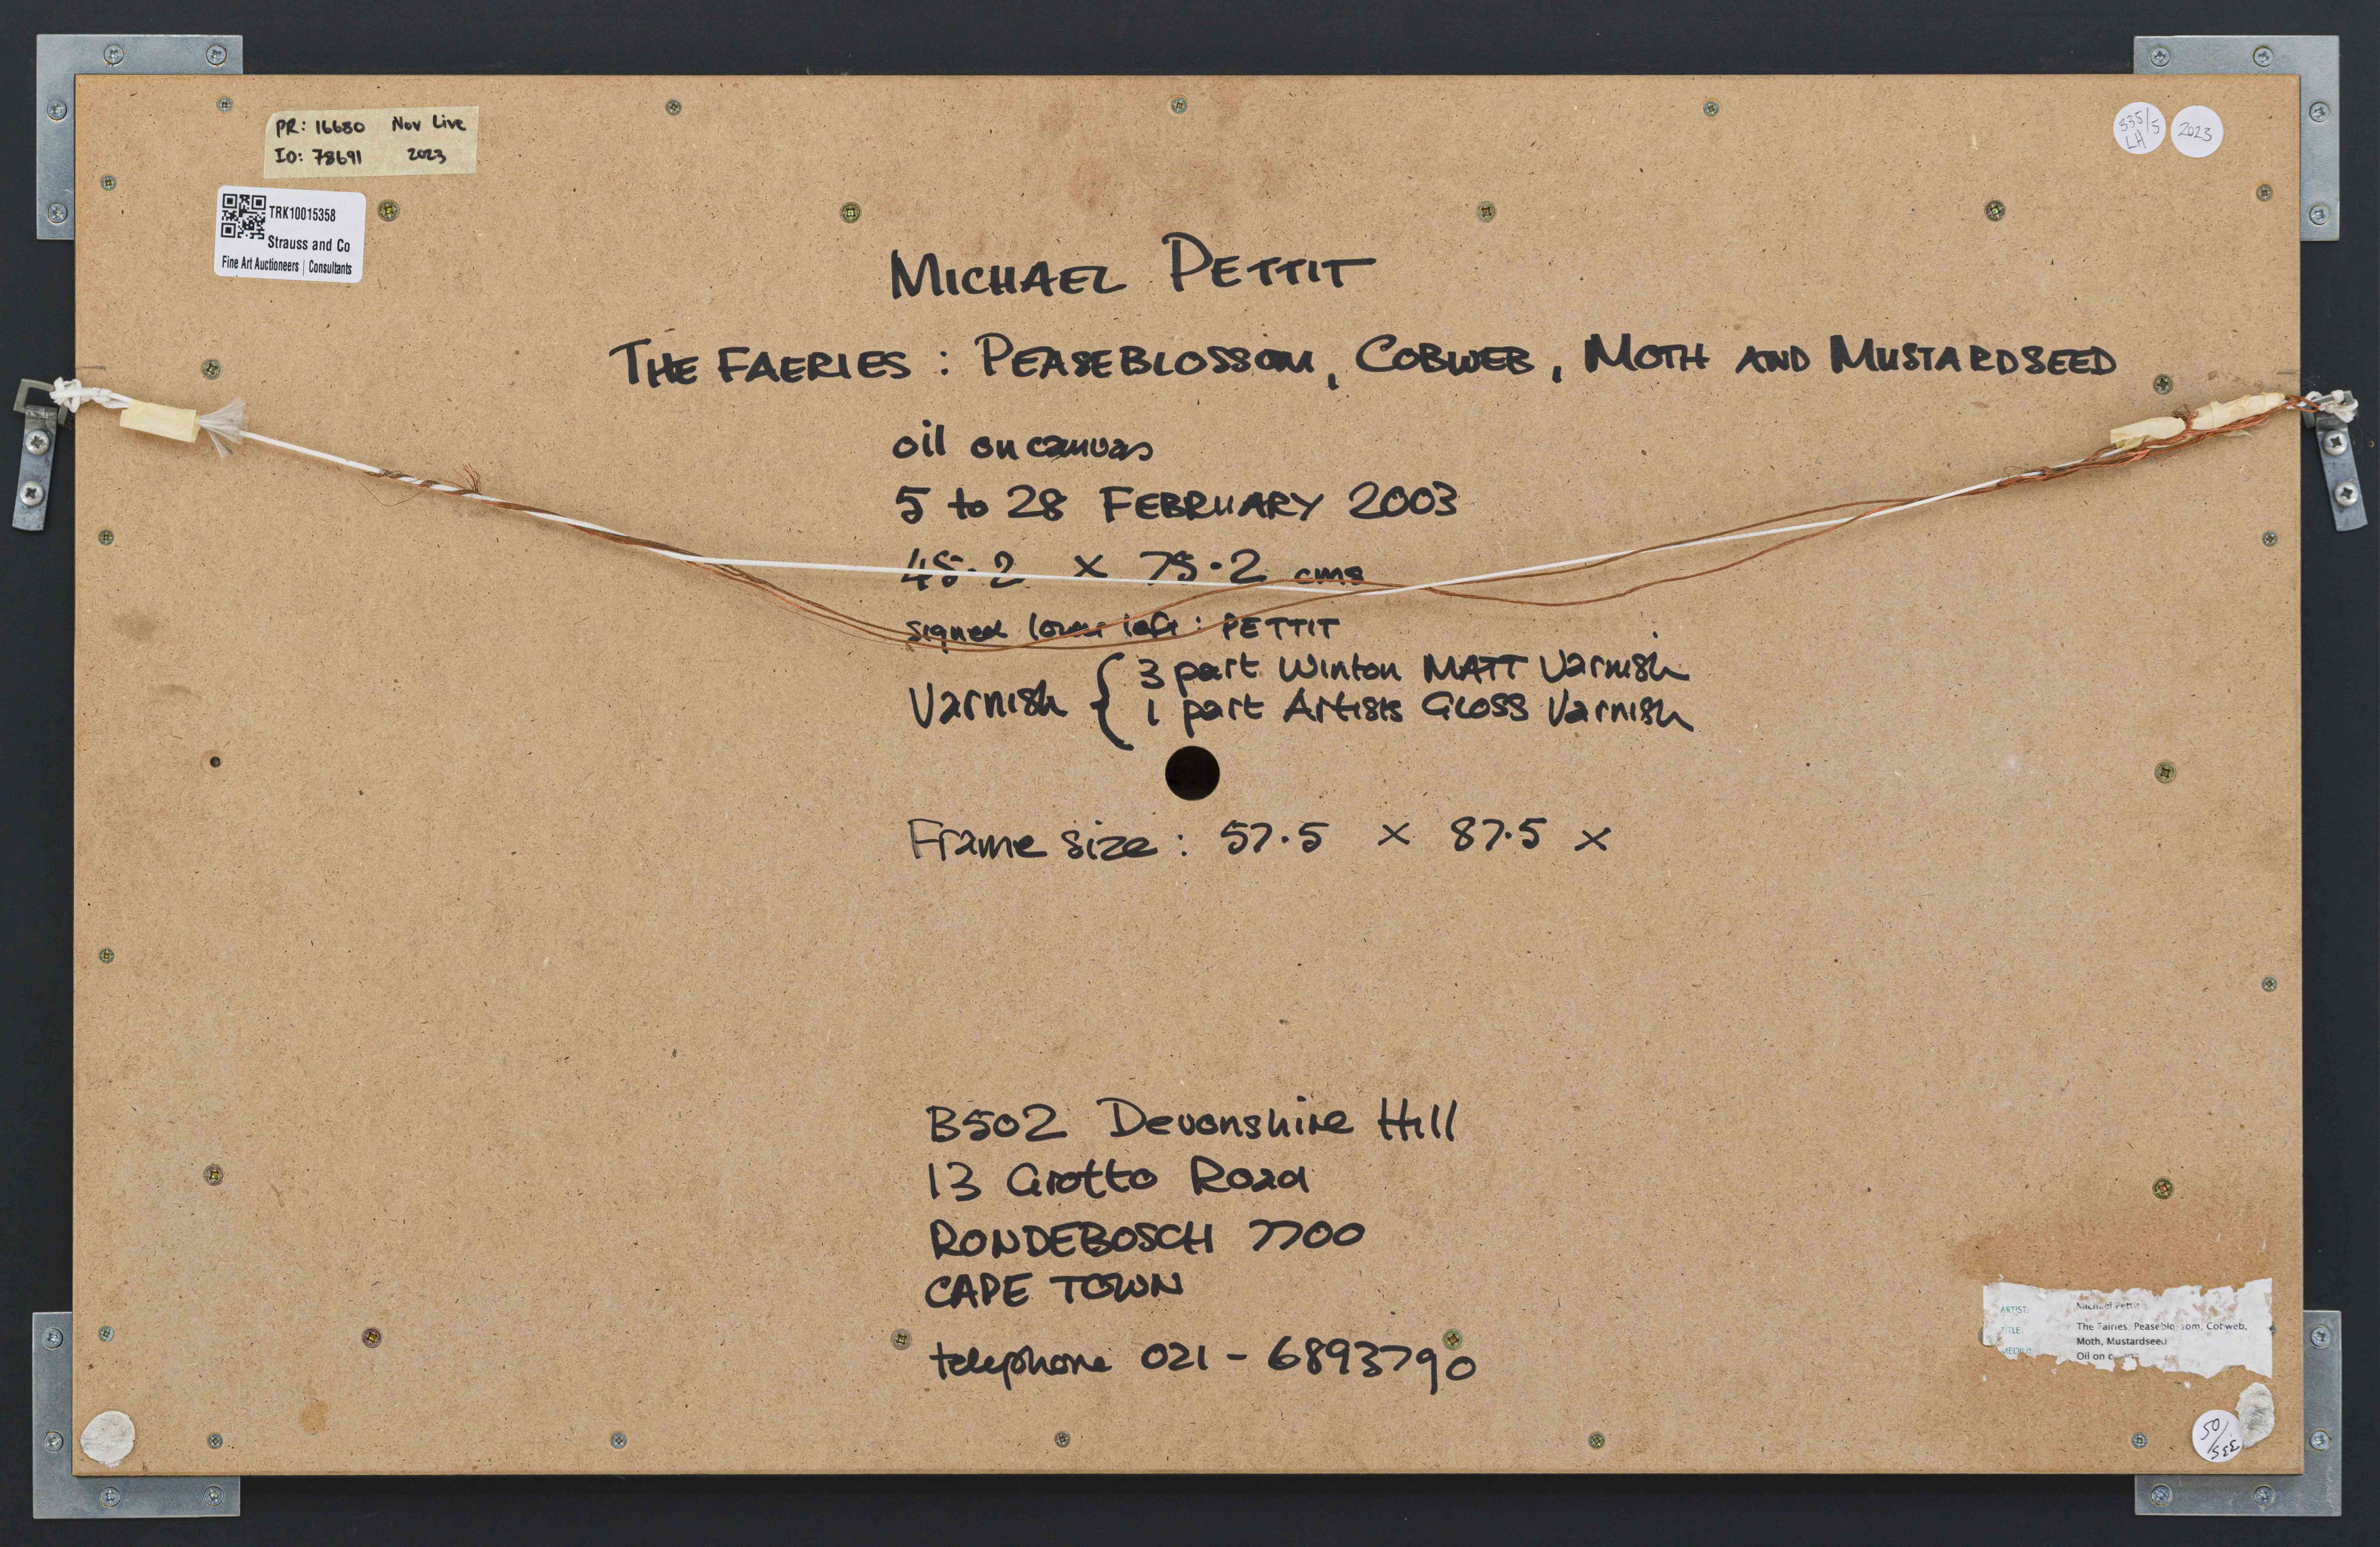 PR: 16680 Nov Live
ID: 78691 2023
TRK10015358
Strauss and Co
Fine Art Auctioneers | Consultants
335/5
LH
2023
MICHAEL PETTIT
THE FAERIES : PEASEBLOSSOM, COBWEB, MOTH AND MUSTARDSEED
oil on canvas
5 to 28 FEBRUARY 2003
45.2 x 75.2 cms
signed lower left : PETTIT
Varnish { 3 part Winton MATT Varnish
1 part Artists GLOSS Varnish
Frame size : 57.5 x 87.5 x
B502 Devonshire Hill
13 Grotto Road
RONDEBOSCH 7700
CAPE TOWN
telephone 021 - 6893790
ARTIST: Michael Pettit
TITLE: The Fairies, Peaseblossom, Cobweb,
Moth, Mustardseed
MEDIUM Oil on
50/
335